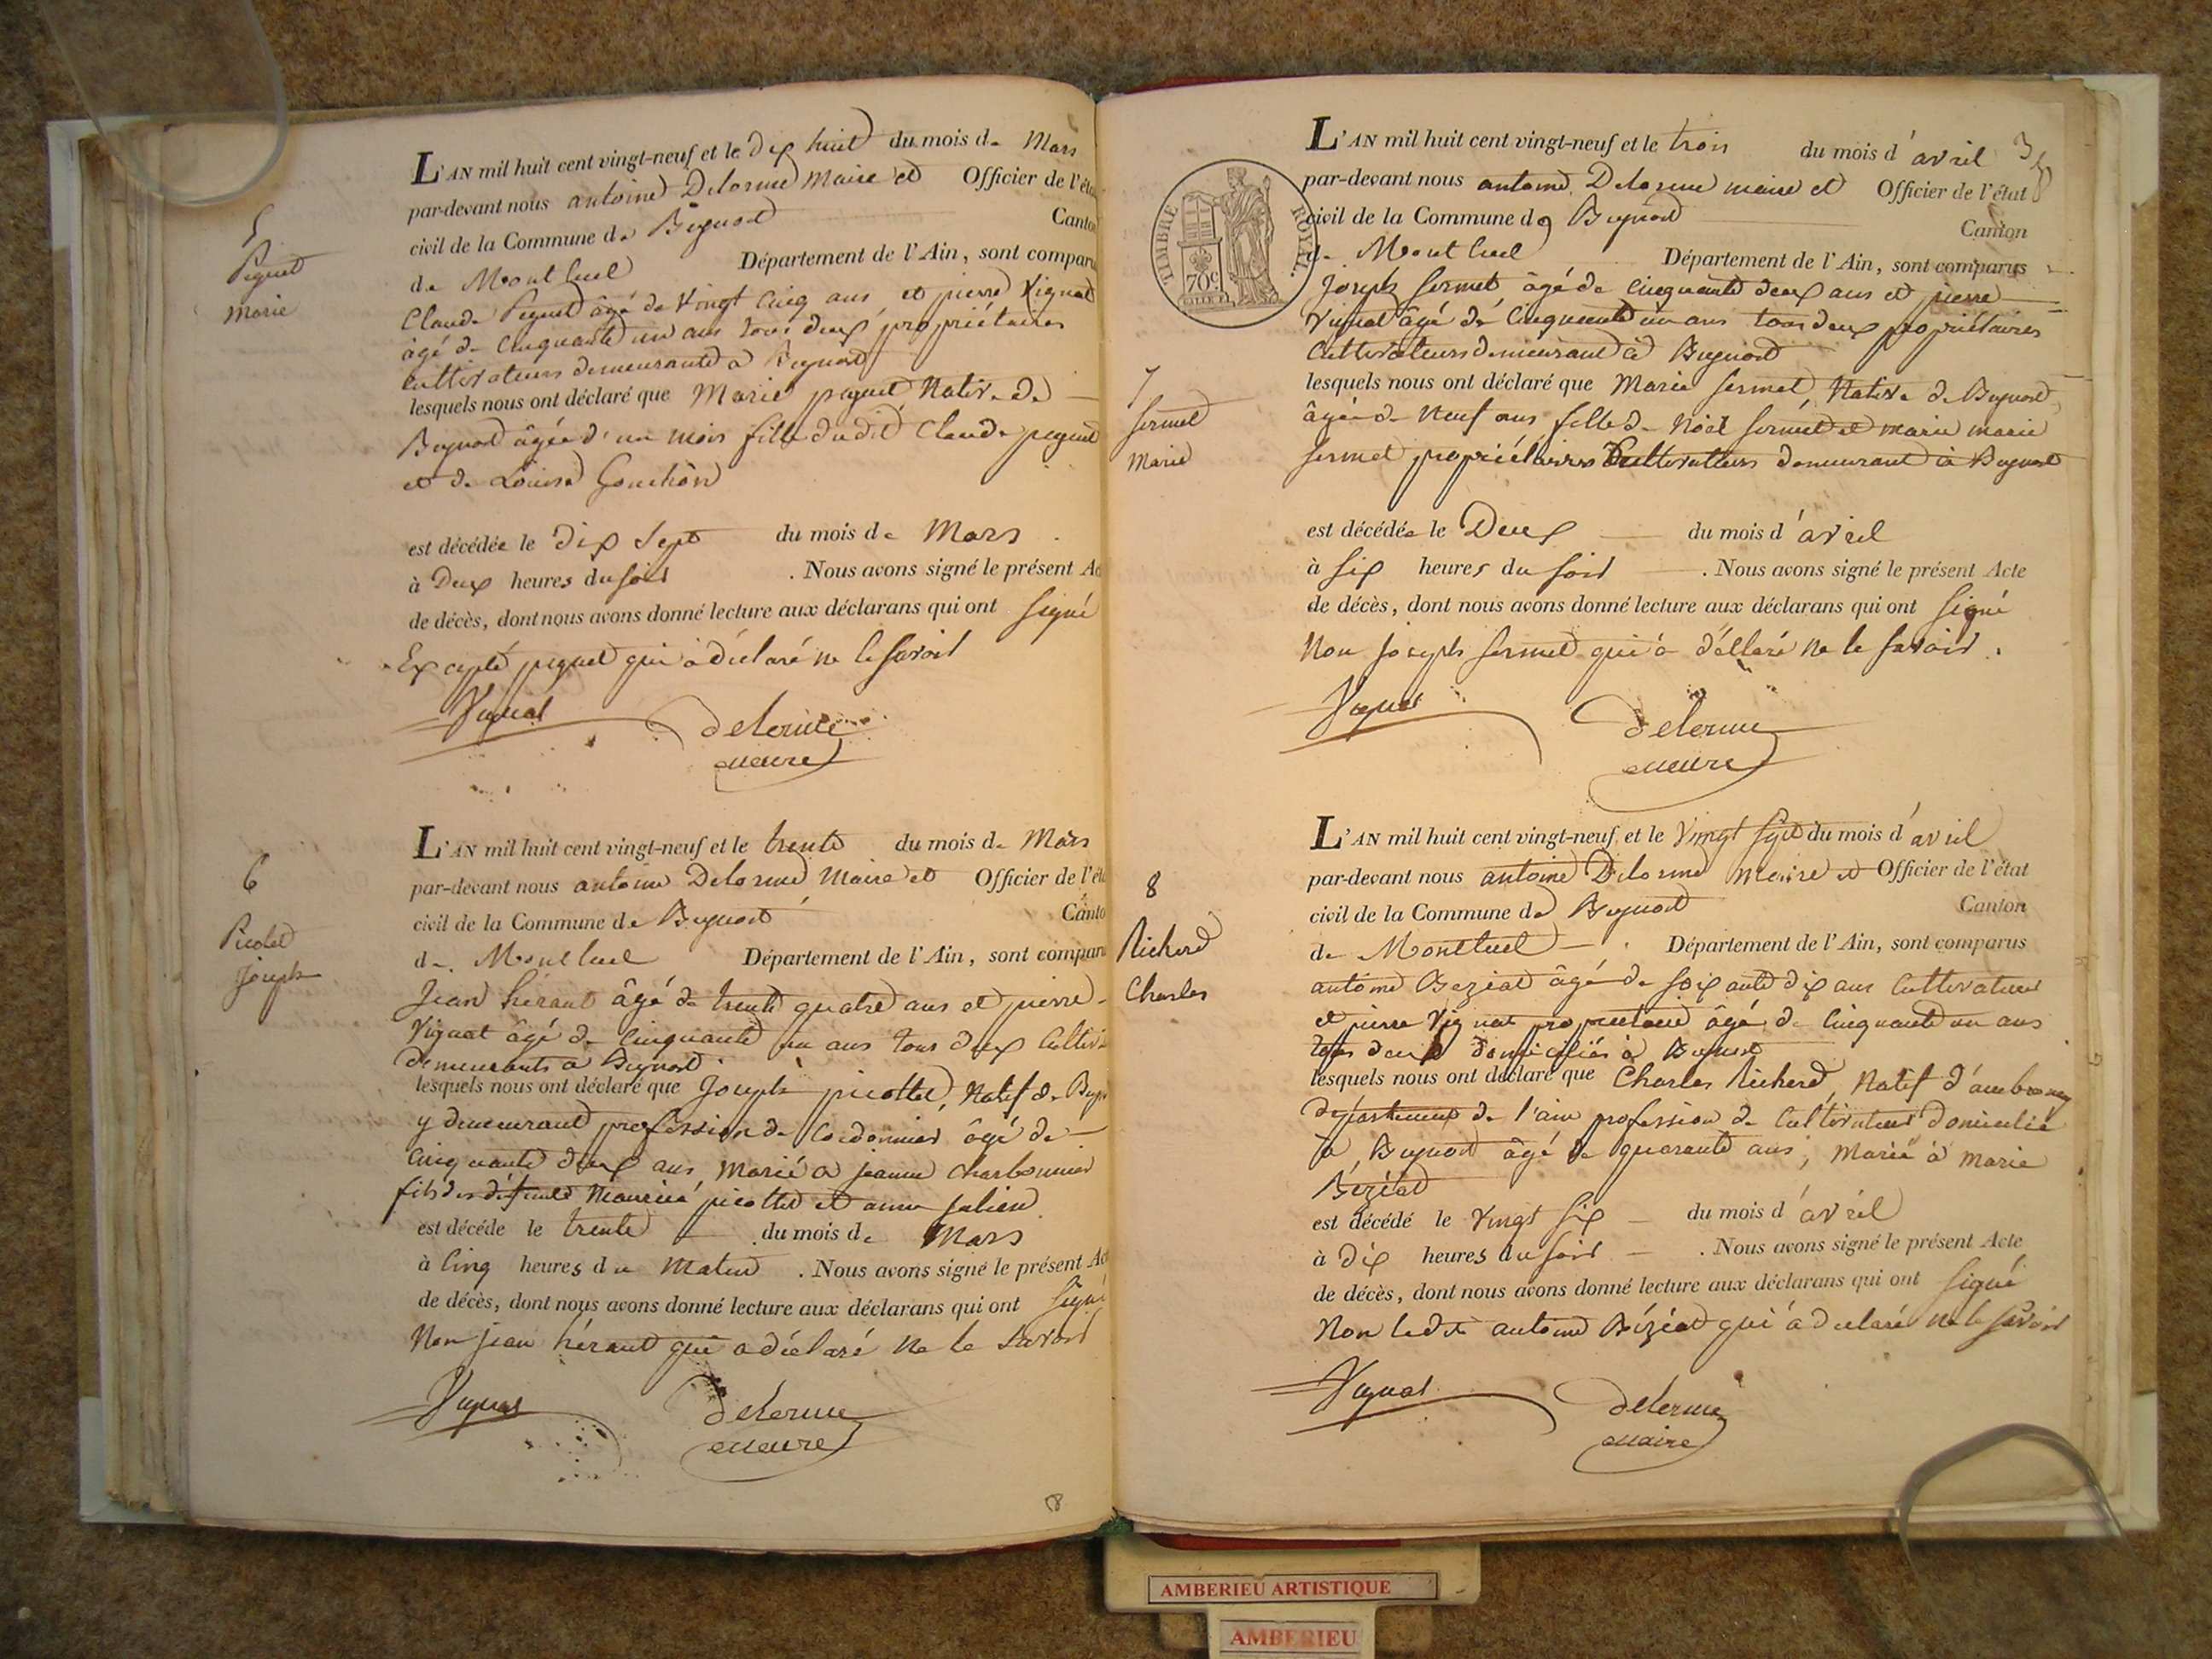 5
Peguet
Marie
L'AN mil huit cent vingt-neuf et le dix huit du mois de Mars
par-devant nous antoine Delorme Maire et Officier de l'éta
civil de la Commune de Beynost Canto
de Montluel Département de l'Ain, sont comparu
Claude Peguet âgé de Vingt Cinq ans et pierre Vignat
âgé de Cinquante un ans tous deux propriétaires
cultivateurs demeurants a Beynost
lesquels nous ont déclaré que Marie peguet Native de
Beynost âgée d'un mois fille dudit Claude peguet
et de Louise
est décédée le dix sept du mois de Mars
à Deux heures du soir . Nous avons signé le présent Ac
de décès, dont nous avons donné lecture aux déclarans qui ont signé
Excepté peguet qui a déclaré ne le savoir
Vignat delorme
maire
6
Picolet
Joseph
L'AN mil huit cent vingt-neuf et le trente du mois de Mars
par-devant nous antoine Delorme Maire et Officier de l'éta
civil de la Commune de Beynost Canto
de Montluel Département de l'Ain, sont compara
Jean héraut âgé de trente quatre ans et pierre
Vignat âgé de Cinquante un ans tous deux Cultiv
demeurants a Beynost
lesquels nous ont déclaré que Joseph picottet, Natif de Beyn
y demeurant profession de Cordonnier âgé de
Cinquante deux ans, Marié a jeanne Charbonnier
fils des défunts Maurice picottet et anne julien
est décéde le trente du mois de Mars
à Cinq heures du Matin . Nous avons signé le présent Act
de décès, dont nous avons donné lecture aux déclarans qui ont signé
Non jean héraut qui a déclaré ne le savoir
Vignat delorme
maire
8
TIMBRE ROYAL.
70c
7
Sermet
Marie
L'AN mil huit cent vingt-neuf et le trois du mois d'avril 3
par-devant nous antoine Delorme maire et Officier de l'état
civil de la Commune de Beynost Canton
de Montluel Département de l'Ain, sont comparus
Joseph Sermet âgé de Cinquante deux ans et pierre
Vignat âgé de Cinquante un ans tous deux propriétaires
Cultivateurs demeurant à Beynost
lesquels nous ont déclaré que Marie Sermet, Native de Beynost
âgée de Neuf ans fille de Noël Sermet et marie marie
Sermet propriétaires Cultivateurs demeurant à Beynost
est décédée le Deux du mois d'avril
à six heures du soir . Nous avons signé le présent Acte
de décès, dont nous avons donné lecture aux déclarans qui ont signé
Non Joseph Sermet qui a déllaré ne le savoir.
Vignat delorme
maire
8
Richerd
Charles
L'AN mil huit cent vingt-neuf et le Vingt sept du mois d'avril
par-devant nous antoine Delorme Maire et Officier de l'état
civil de la Commune de Beynost Canton
de Montluel Département de l'Ain, sont comparus
antoine Beziat âgé de soixante dix ans Cultivateur
et pierre Vignat propriétaire âgé de Cinquante un ans
tous deux domiciliés à Beynost
lesquels nous ont déclaré que Charles Richerd, Natif d'ambronay
département de l'ain profession de Cultivateur domicilié
à Beynost âgé de quarante ans, Marié à Marie
Béziat
est décédé le Vingt six du mois d'avril
à dix heures du soir . Nous avons signé le présent Acte
de décès, dont nous avons donné lecture aux déclarans qui ont signé
Non ledit antoine Béziat qui à declaré ne le savoir
Vignat delorme
maire
AMBERIEU ARTISTIQUE
AMBERIEU